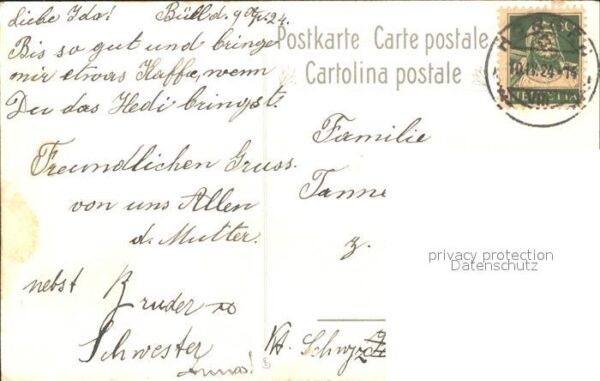 Liebe Ida!
Bis so gut und bringe
mir etwas Kaffe, wenn
Du das Hedi bringst.
Freundlichen Gruss
von uns Allen
d. Mutter.
nebst Bruder
Schwester
Anna!
Postkarte Carte postale
Cartolina postale
HELVETIA
Familie
Tanne
z.
Kt. Schwyz
privacy protection
Datenschutz